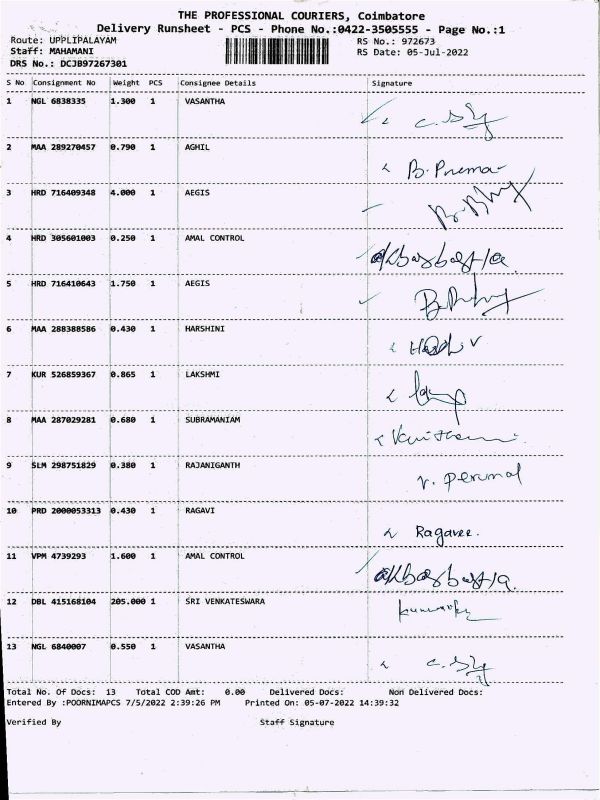 THE PROFESSIONAL COURIERS, Coimbatore
Delivery Runsheet - PCS - Phone No.:0422-3505555 - Page No.:1
Route: UPPLIPALAYAM RS No.: 972673
Staff: MAHAMANI RS Date: 05-Jul-2022
DRS No.: DCJB97267301
S No Consignment No Weight PCS Consignee Details Signature
1 NGL 6838335 1.300 1 VASANTHA
2 MAA 289270457 0.790 1 AGHIL B. Prema
3 HRD 716409348 4.000 1 AEGIS
4 HRD 305601003 0.250 1 AMAL CONTROL
5 HRD 716410643 1.750 1 AEGIS
6 MAA 288388586 0.430 1 HARSHINI
7 KUR 526859367 0.865 1 LAKSHMI
8 MAA 287029281 0.680 1 SUBRAMANIAM
9 SLM 298751829 0.380 1 RAJANIGANTH v. perumal
10 PRD 2000053313 0.430 1 RAGAVI Ragavee.
11 VPM 4739293 1.600 1 AMAL CONTROL
12 DBL 415168104 205.000 1 SRI VENKATESWARA
13 NGL 6840007 0.550 1 VASANTHA
Total No. Of Docs: 13 Total COD Amt: 0.00 Delivered Docs: Non Delivered Docs:
Entered By :POORNIMAPCS 7/5/2022 2:39:26 PM Printed On: 05-07-2022 14:39:32
Verified By Staff Signature